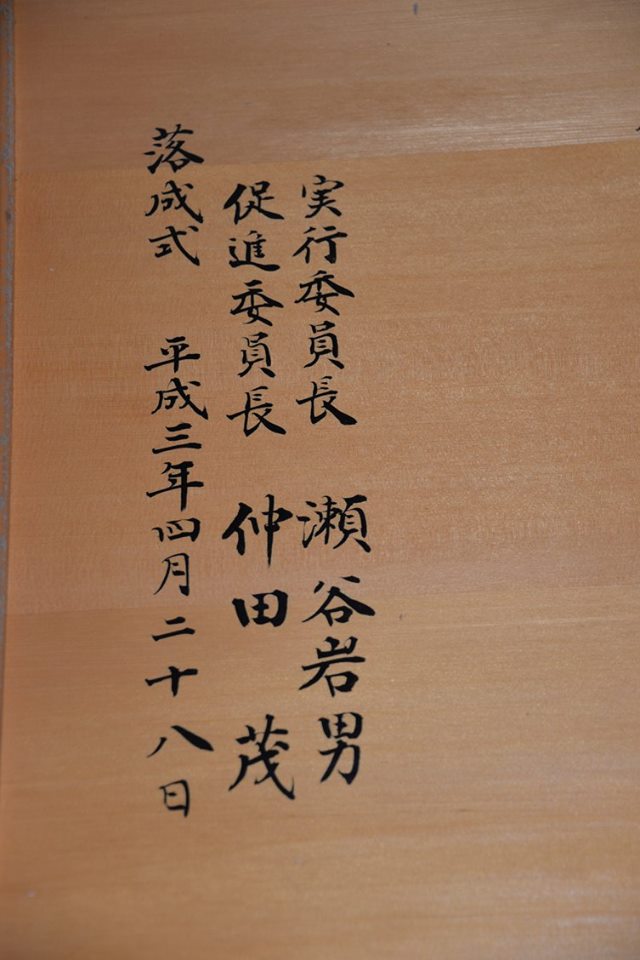 実行委員長 瀬谷岩男
促進委員長 仲田 茂
落成式 平成三年四月二十八日